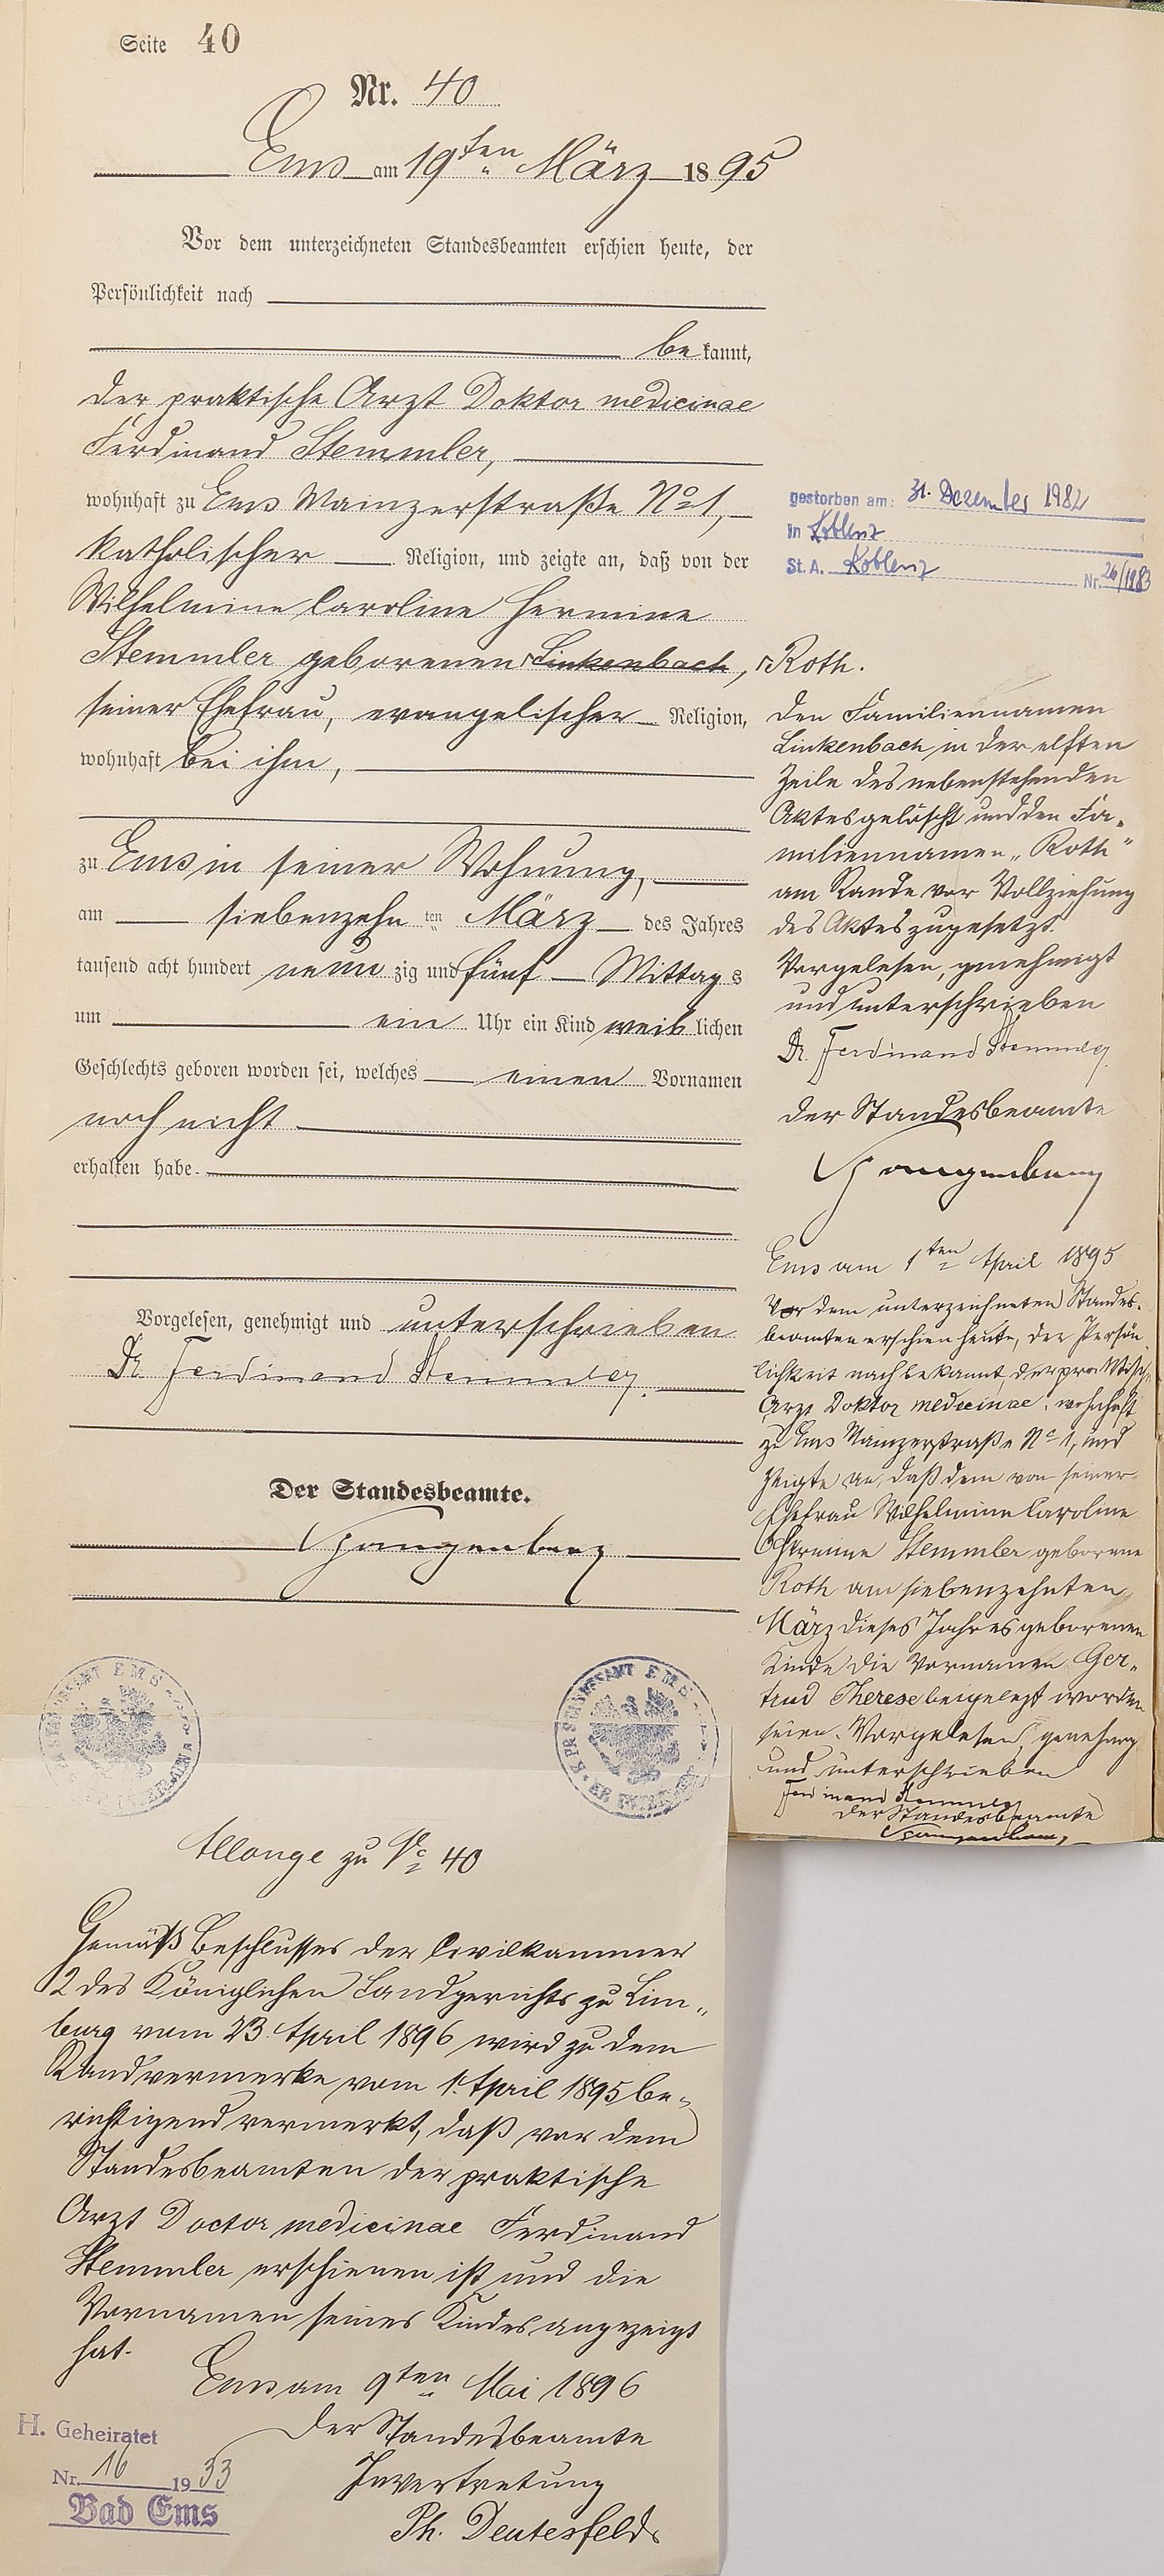 Seite 40
Nr. 40
Ems am 19ten März 1895
Vor dem unterzeichneten Standesbeamten erschien heute, der
Persönlichkeit nach
bekannt,
der praktische Arzt Doktor medicinae
Ferdinand Stemmler,
wohnhaft zu Ems Mainzerstraße No 1,
katholischer Religion, und zeigte an, daß von der
Wilhelmine Caroline Hermine
Stemmler geborenen Linkenbach,
seiner Ehefrau, evangelischer Religion,
wohnhaft bei ihm,
zu Ems in seiner Wohnung,
am siebenzehnten März des Jahres
tausend acht hundert neunzig und fünf Mittags
um ein Uhr ein Kind weiblichen
Geschlechts geboren worden sei, welches einen Vornamen
noch nicht
erhalten habe.
Vorgelesen, genehmigt und unterschrieben
Dr. Ferdinand Stemmler.
Der Standesbeamte.
gestorben am: 31. Dezember 1982
in Koblenz
St. A. Koblenz Nr. 26/1983
Roth.
Den Familiennamen
Linkenbach in der elften
Zeile des nebenstehenden
Aktes gelöscht und den Fa-
miliennamen „Roth"
am Rande vor Vollziehung
des Aktes zugesetzt.
Vorgelesen, genehmigt
und unterschrieben
Dr. Ferdinand Stemmler.
Der Standesbeamte
Ems am 1ten April 1895
Vor dem unterzeichneten Standes-
beamten erschien heute, der Persön
lichkeit nach bekannt, der praktisch.
Arzt Doktor medicinae, wohnhaft
zu Ems Mainzerstraße No 1, und
zeigte an, daß dem von seiner
Ehefrau Wilhelmine Caroline
Hermine Stemmler geborene
Roth am siebenzehnten
März dieses Jahres geborenen
Kinde die Vornamen Ger-
trud Therese beigelegt worden
seien. Vorgelesen, genehmigt
und unterschrieben
Ferdinand Stemmler
Der Standesbeamte
K. PR. STANDESAMT EMS
K. PR. STANDESAMT EMS
Allonge zu No 40
Gemäß Beschlusses der Civilkammer
2 des Königlichen Landgerichts zu Lim-
burg vom 23. April 1896 wird zu dem
Randvermerke vom 1. April 1895 be-
richtigend vermerkt, daß vor dem
Standesbeamten der praktische
Arzt Doctor medicinae Ferdinand
Stemmler erschienen ist und die
Vornamen seines Kindes angezeigt
hat.
Ems am 9ten Mai 1896
Der Standesbeamte
In Vertretung
Ph. Deutesfeld
H. Geheiratet
Nr. 16 1933
Bad Ems